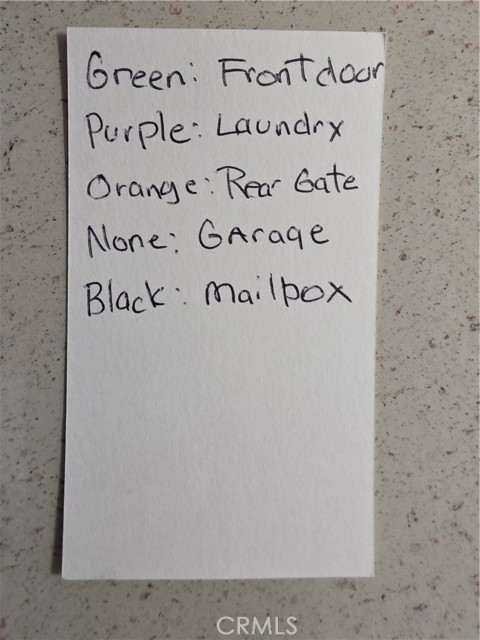 Green: Front door
Purple: Laundry
Orange: Rear Gate
None: GArage
Black: mailbox
CRMLS